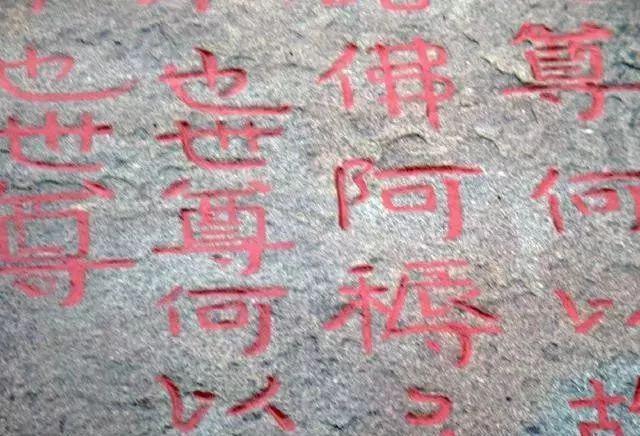 尊何以故
佛阿耨
也世尊何以
也世尊